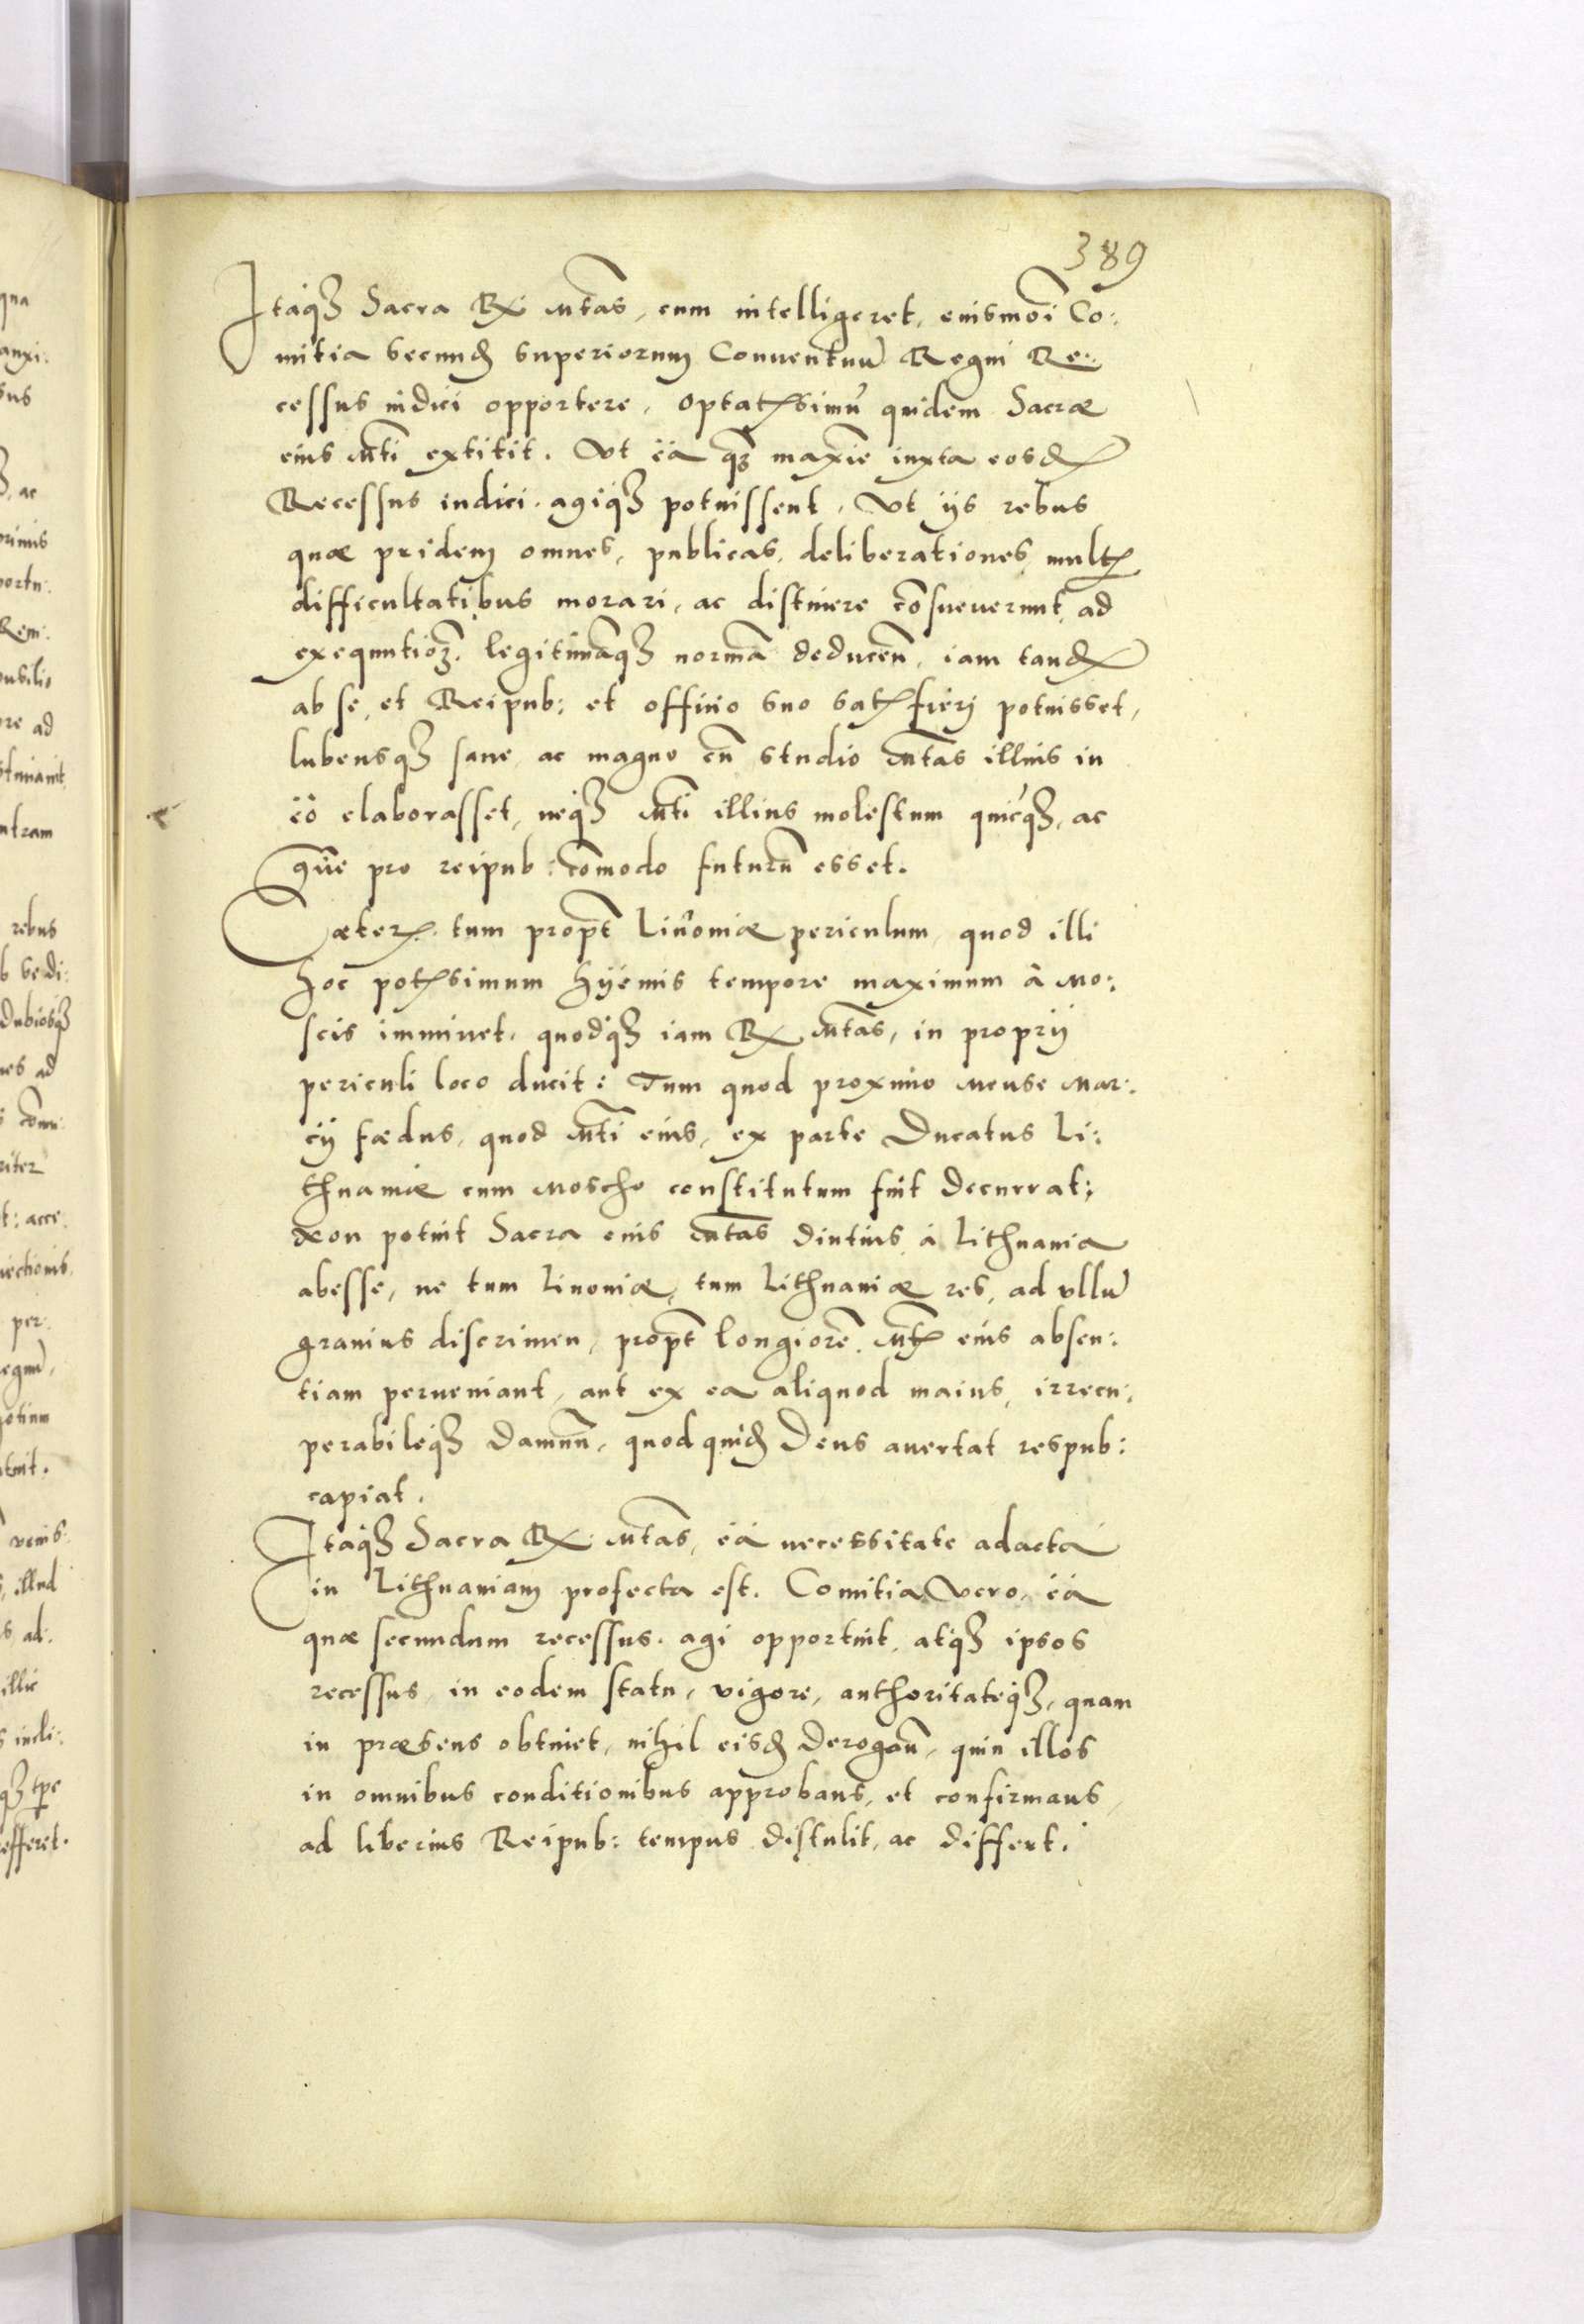 389
Itaqȝ Sacra Rx. Mtas, cum intelligeret, eiusmoi Co:
mitia secund superiorum Conuentuū Regni Re:
cessus indici opportere, optatissimū quidem Sacræ
eius Mti extitit. Vt ea qȝ maxie iuxta eosd
Recessus indici. agiqȝ potuissent, Vt ijs rebus
quæ pridem omnes, publicas, deliberationes mult
difficultatibus morari, ac distinere cōsueuerunt, ad
exequutioȝ, legitimāqȝ normā deducen, iam tand
ab se, et Reipub: et officio suo satisfieri potuisset,
lubensqȝ sane ac magno cū studio Mtas illius in
eo elaborasset, neqȝ Mti illius molestum quicqȝ, ac
graue pro reipub: cōmodo futurū esset.
Cæter. tum propt Liuoniæ periculum, quod illi
hoc potissimum hyemis tempore maximum à Mo:
scis imminet, quodqȝ iam Rx Mtas, in proprij
periculi loco ducit: Tum quod proximo Mense Mar:
cij fædus, quod Mti eius, ex parte Ducatus Li:
thuaniæ cum Moscho constitutum fuit decurrat;
Non potuit Sacra eius Mtas diutius à Lithuania
abesse, ne tum Liuoniæ, tum Lithuaniæ res, ad vllū
grauius discrimen, propt longiorē Mtis eius absen:
tiam perueniant, aut ex ea aliquod maius, irrecu:
perabileqȝ damnū, quod quid Deus auertat respub:
capiat.
Itaqȝ Sacra Rx. Mtas, ea necessitate adacta
in Lithuaniam profecta est. Comitia Vero, ea
quæ secundum recessus. agi opportuit, atqȝ ipsos
recessus in eodem statu, vigore, authoritateqȝ, quam
in præsens obtinet, nihil eisd derogan, quin illos
in omnibus conditionibus approbans, et confirmans,
ad liberius Reipub: tempus distulit, ac differt.